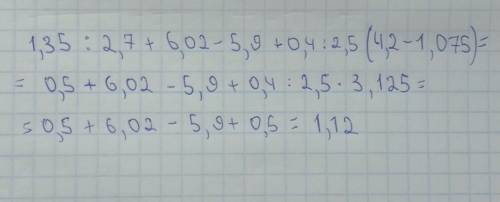 1,35 : 2,7 + 6,02 - 5,9 + 0,4 : 2,5 (4,2 - 1,075) =
= 0,5 + 6,02 - 5,9 + 0,4 : 2,5 · 3,125 =
= 0,5 + 6,02 - 5,9 + 0,5 = 1,12